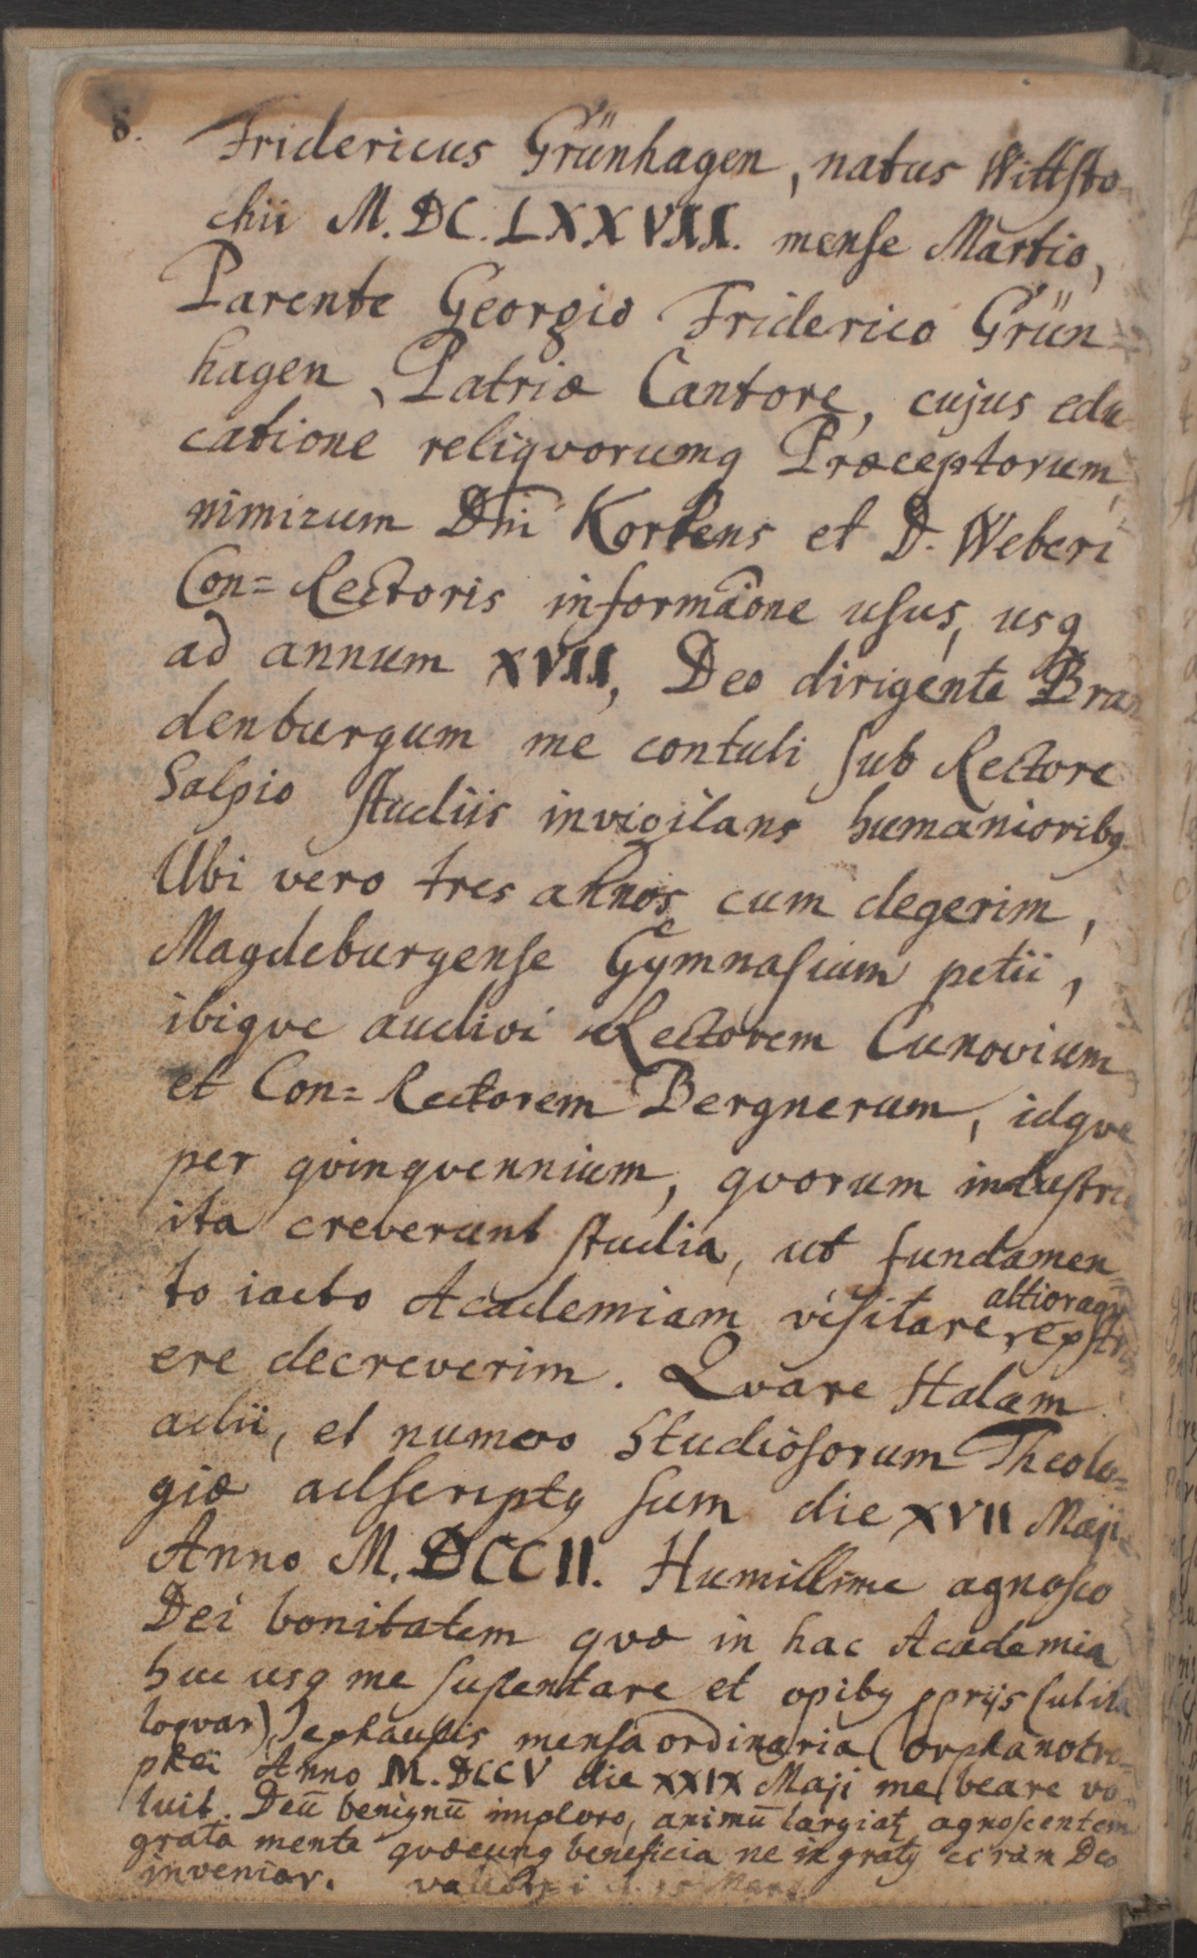 8. Fridericus Grünhagen, natus Wittsto-
chii M.DC.LXXVII. mense Martio,
Parente Georgio Friderico Grün-
hagen, Patriæ Cantore, cujus edu-
catione reliqvorumq Præceptorum,
nimirum Dni Kortens et D. Weberi
Con=Rectoris informaõne usus, usq
ad annum XVII, Deo dirigente Bran
denburgum me contuli sub Rectore
Salpio studiis invigilans humanioribq.
Ubi vero tres annos cum degerim,
Magdeburgense Gymnasium petii,
ibiqve audivi Rectorem Cunovium
et Con=Rectorem Bergnerum, idqve
per qvinqvennium, qvorum industria
ita creverunt studia, ut fundamen=
to iacto Academiam visitare, altioraq
exstru
ere decreverim. Qvare Halam
adii, et numero Studiosorum Theolo=
giæ adscriptq sum die XVII Maji
Anno M.DCCII. Humillime agnosco
Dei bonitatem qvæ in hac Academia
huc usq me sustentare et opibq pprijs (ut ita
loqvar) exhaustis mensa ordinaria Orphanotro=
phei Anno M.DCCV die XXIX Maji me beare vo=
luit. Deū benignū imploro, animū largiatꝛ agnoscentem
grata mente qvæcunq beneficia ne ingratq coram Deo
inveniar.